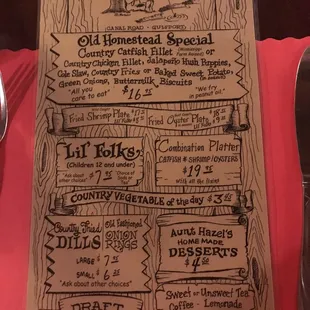 CANAL ROAD • GULFPORT
Old Homestead Special
Country Catfish Fillet
Country Chicken Fillet, Jalapeño Hush Puppies,
Cole Slaw, Country Fries or Baked Sweet Potato,
Green Onions, Buttermilk Biscuits
"All you care to eat"
$16
"We fry in peanut oil."
Fried Shrimp Plate
Fried Oyster Plate
Lil' Folks
(Children 12 and under)
"Ask about other choices"
$7
Combination Platter
CATFISH & SHRIMP/OYSTERS
$19
with all the fixins
COUNTRY VEGETABLE of the day $3
Country Fried
DILLS
Old Fashioned
ONION RINGS
LARGE $7
SMALL $6
"Ask about other choices"
Aunt Hazel's
HOME MADE
DESSERTS
$4
DRAFT
Sweet or Unsweet Tea
Coffee - Lemonade